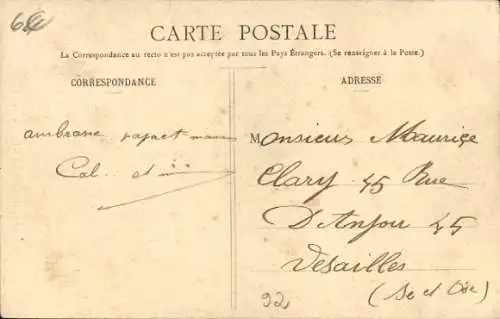 68
CARTE POSTALE
La Correspondance au recto n'est pas acceptée par tous les Pays Étrangers. (Se renseigner à la Poste.)
CORRESPONDANCE
ADRESSE
Monsieur Maurice
Clary 45 Rue
D'Anjou 45
Vesailles
(Se et Oise)
92